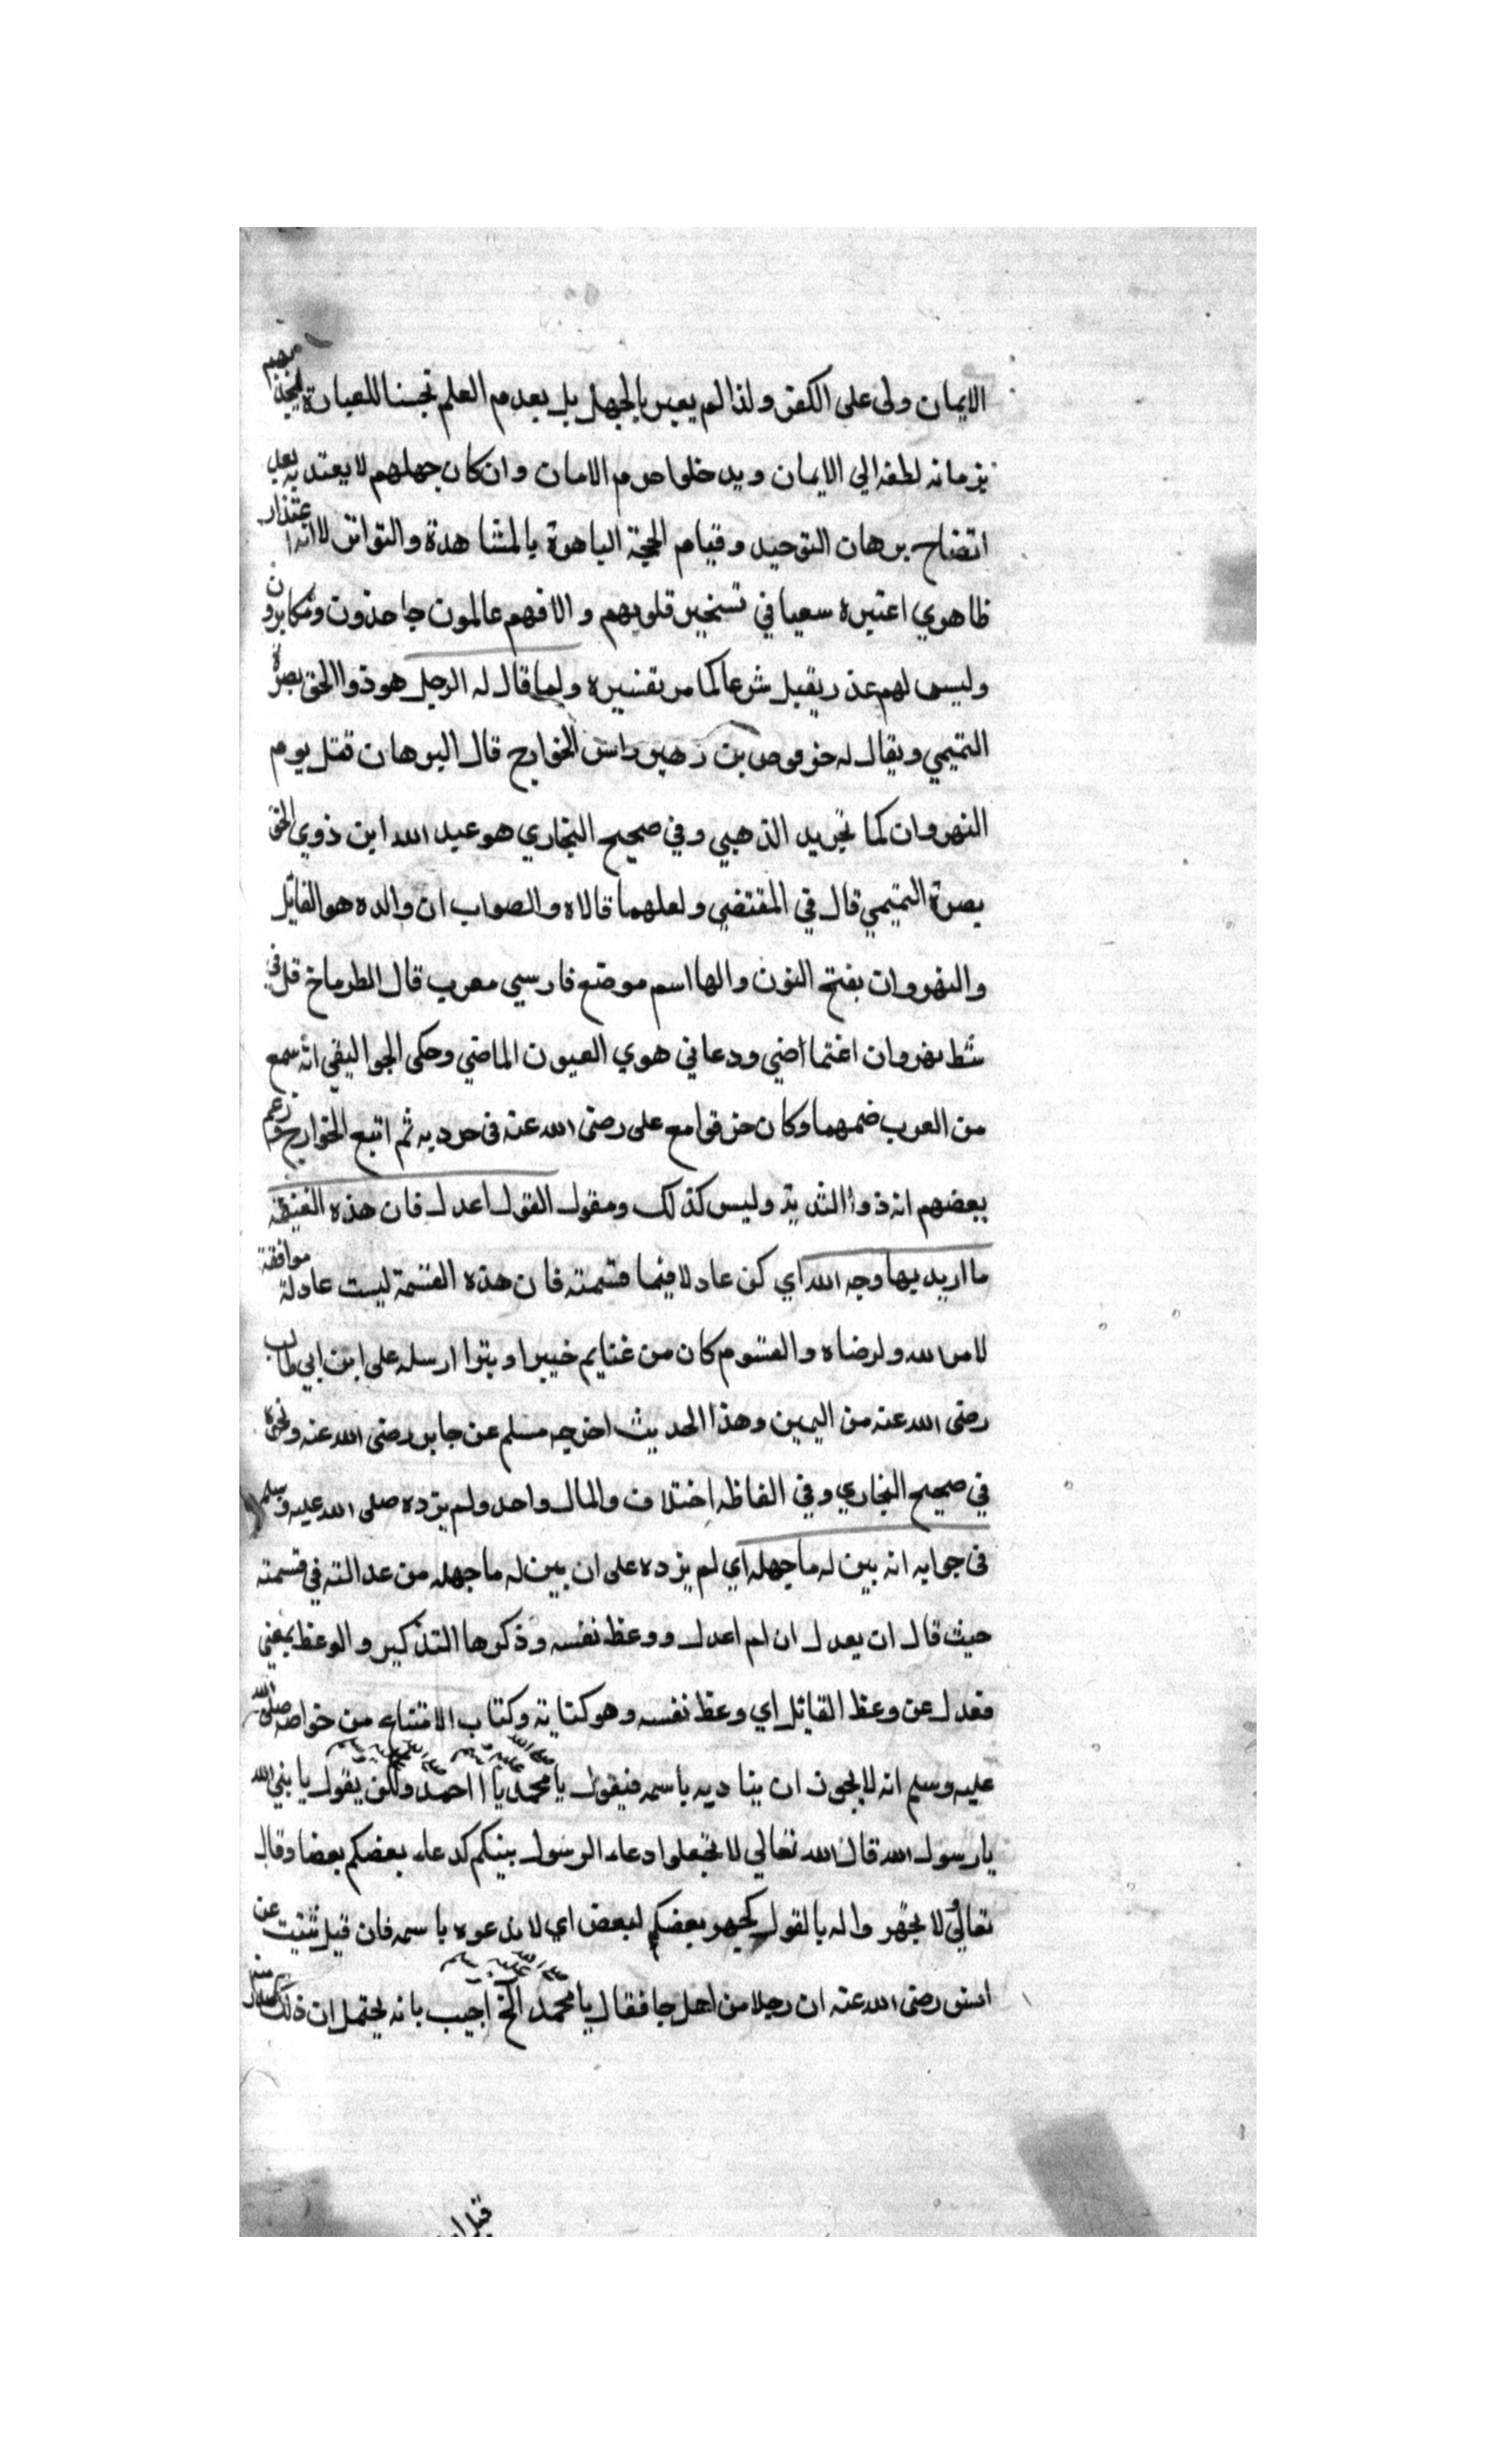 الايمان ولى على الكفر ولذا لم يعبر بالجهل بل بعدم العلم تحسينا للعبارة ليجذبهم
بزمانه لطفه الي الايمان ويدخلوا حرم الامان وان كان جهلهم لا يعتد به بعد
اتضاح برهان التوحيد وقيام الحجة الباهرة بالمشاهدة والتواتر لا انه اعتذار
ظاهري اعتبره سعيا في تسخير قلوبهم والا فهم عالمون جاحدون ومكابرون
وليس لهم عذر يقبل شرعا كما مر تفسيره ولما قال له الرجل هو ذوا الخويصرة
التميمي ويقال له حرقوص بن زهير راس الخوارج قال البرهان قتل يوم
النهروان كما تجريد الذهبي وفي صحيح البخاري هو عبد الله ابن ذوي الخو
يصرة التميمي قال في المقتضي ولعلهما قالاه والصواب ان والده هو القائل
والنهروان بفتح النون والها اسم موضع فارسي معرب قال الطرماخ قل في
شط نهروان اغتماضي ودعاني هوي العيون الماضي وحكى الجواليقي انه سمع
من العرب ضمهما وكان حرقوا مع على رضى الله عنه فى حروبه ثم اتبع الخوارج وزعم
بعضهم انه ذوا الثدية وليس كذلك ومقول القول اعدل فان هذه القسمة
ما اريد بها وجه الله اي كن عادلا فيما قسمته فان هذه القسمة ليست عادلة موافقة
لامر الله ولرضاه والمقسوم كان من غنايم خيبر او تبرا ارسله على ابن ابي طالب
رضى الله عنه من اليمن وهذا الحديث اخرجه مسلم عن جابر رضى الله عنه ونحوه
في صحيح البخاري وفي الفاظه اختلاف والمال واحد ولم يزده صلى الله عليه وسلم
فى جوابه انه بين له ما جهله اي لم يزده على ان بين له ما جهله من عدالته في قسمته
حيث قال ان يعدل ان لم اعدل ووعظ نفسه وذكرها التذكير والوعظ بمعني
فعدل عن وعظ القائل اي وعظ نفسه وهو كناية وكتاب الامتناع من خواصه صلى الله
عليه وسلم انه لا يجوز ان يناديه باسمه فيقول يا محمد يا احمد ولكن يقول يا نبي الله
يا رسول الله قال الله تعالي لا تجعلوا دعاء الرسول بينكم كدعاء بعضكم بعضا وقال
تعالي ولا تجهروا له بالقول كجهر بعضكم لبعض اي لا تدعوه باسمه فان قيل ثبت عن
انس رضى الله عنه ان رجلا من اهل جا فقال يا محمد الخ اجيب بانه يحتمل ان ذلك
قبل